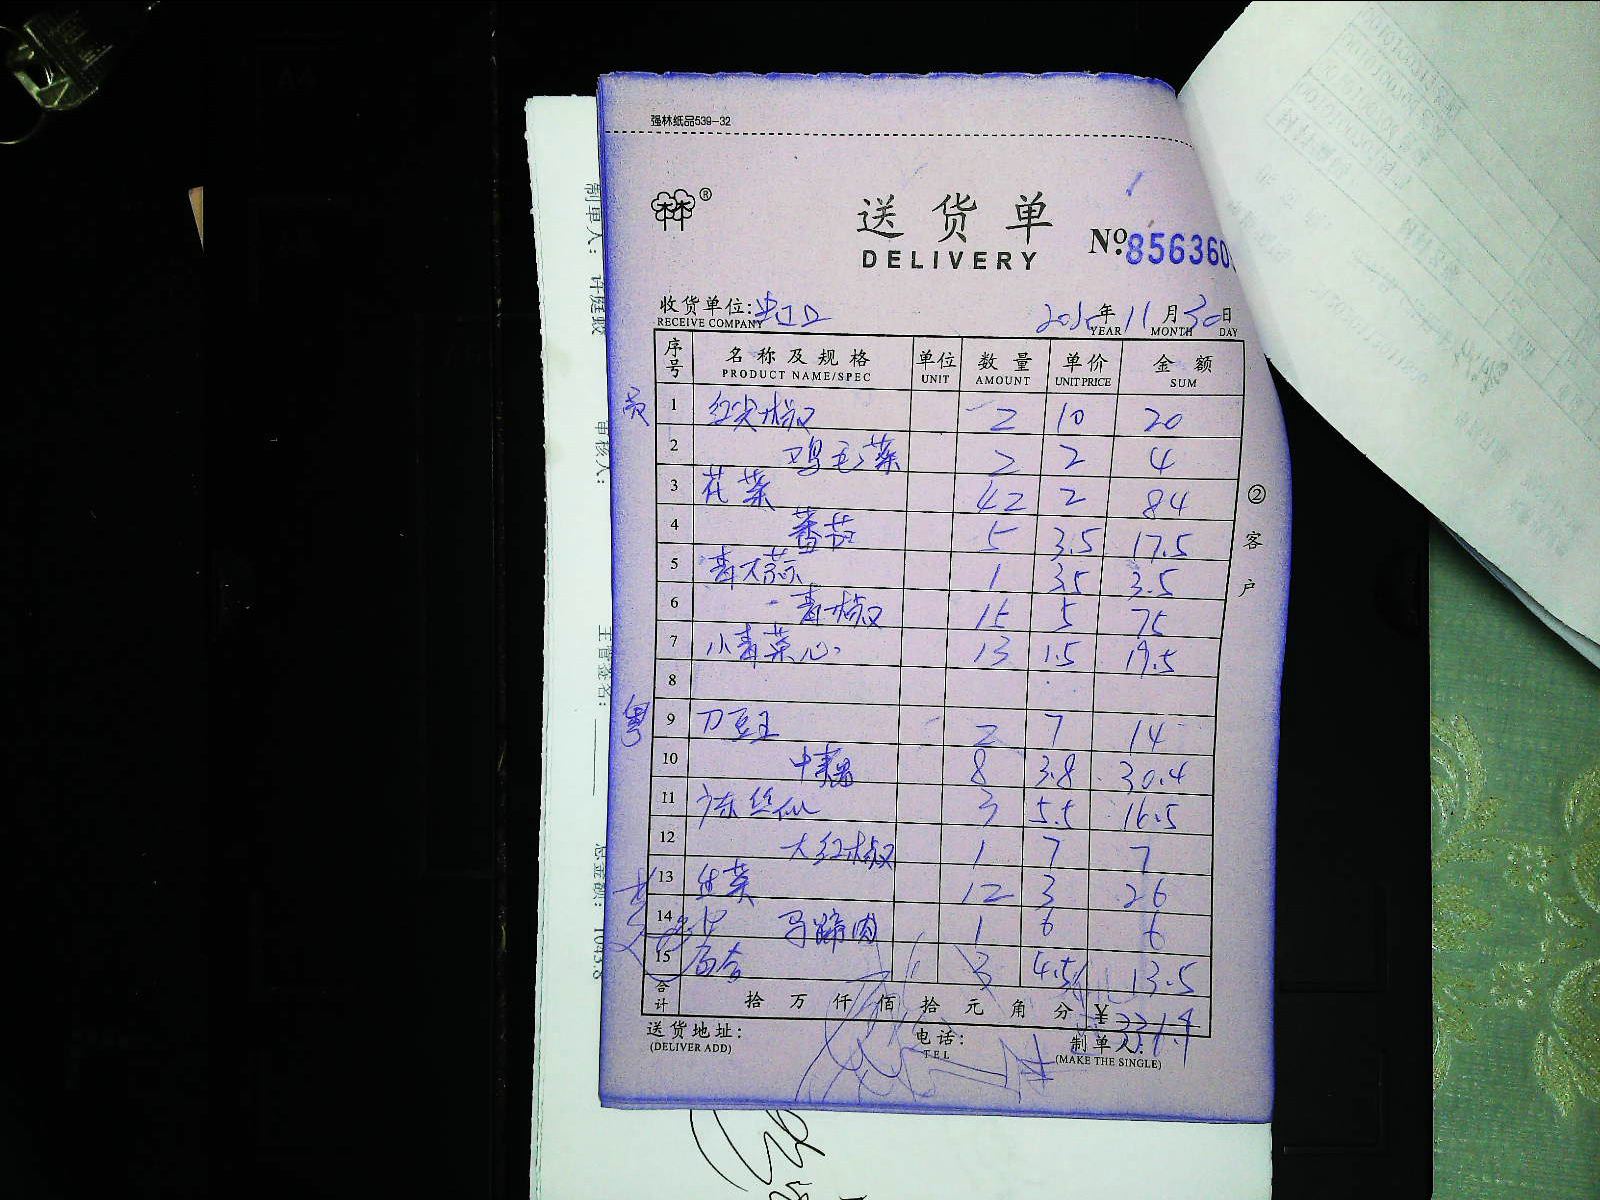 强林纸品539-32
林林®
送货单
DELIVERY
№:856360
收货单位: 虹口
RECEIVE COMPANY
年 11 月 30 日
YEAR MONTH DAY
序号 名称及规格 单位 数量 单价 金额
PRODUCT NAME/SPEC UNIT AMOUNT UNIT PRICE SUM
1 红尖椒 2 10 20
2 鸡毛菜 2 2 4
3 花菜 42 2 84
4 番茄 5 3.5 17.5
5 青大蒜 1 3.5 3.5
6 青椒 15 5 75
7 小青菜心 13 1.5 19.5
8
9 刀豆王 2 7 14
10 8 3.8 30.4
11 3 5.5 16.5
12 大红椒 1 7 7
13 生菜 12 3 26
14 马蹄肉 1 6 6
15 3 4.5 13.5
合计 拾 万 仟 佰 拾 元 角 分 ¥
送货地址: 电话: 制单人:
(DELIVER ADD) TEL (MAKE THE SINGLE)
②客户
粤
制单人:
审核人:
主管签名:
总金额: 1043.8